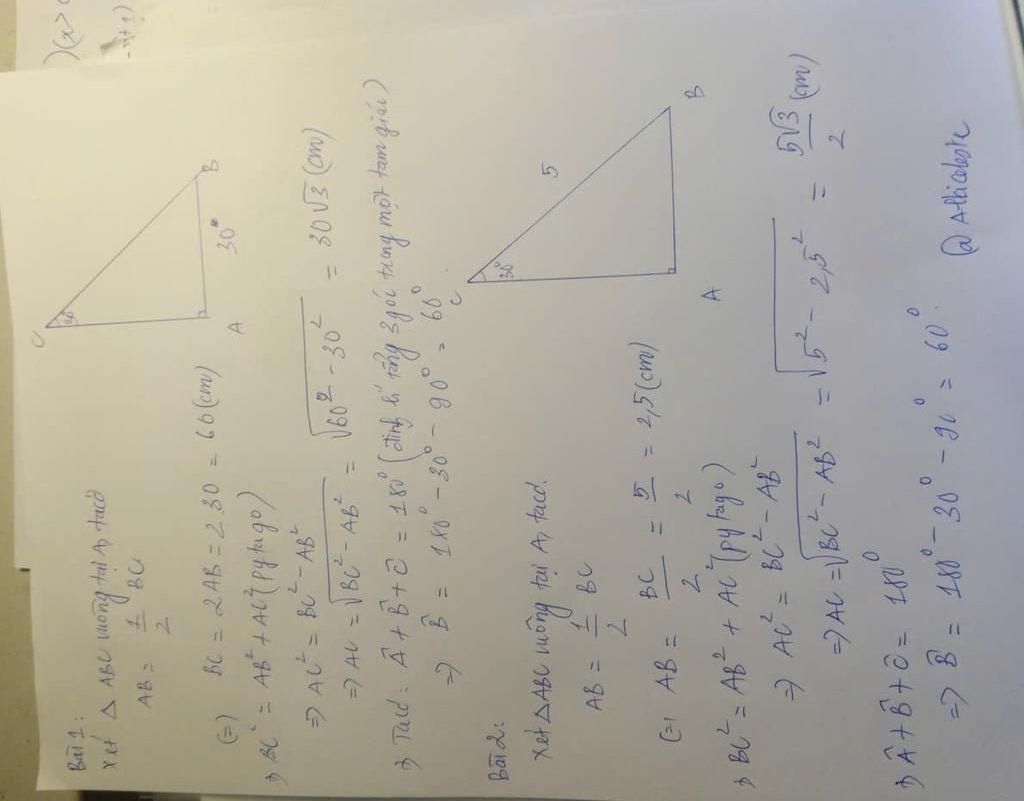 )(x>
Bài 1:
Xét △ ABC vuông tại A, tacó
AB = 1/2 BC
(=) BC = 2AB = 2 30 = 60 (cm)
→ BC² = AB² + AC² (pytago)
=> AC² = BC² - AB²
=> AC = √(BC² - AB²) = √(60² - 30²) = 30√3 (cm)
→ Tacó: Â + B̂ + Ĉ = 180° (định lí tổng 3 gói trong một tam giác)
=> B̂ = 180° - 30° - 90° = 60°
C
30°
B
30
A
Bài 2:
Xét △ABC vuông tại A, tacó.
AB = 1/2 BC
(=) AB = BC/2 = 5/2 = 2,5 (cm)
→ BC² = AB² + AC² (pytago)
=> AC² = BC² - AB²
=> AC = √(BC² - AB²) = √(5² - 2,5²) = 5√3/2 (cm)
→ Â + B̂ + Ĉ = 180°
=> B̂ = 180° - 30° - 90° = 60°
C
30°
5
B
A
@Albiceleste